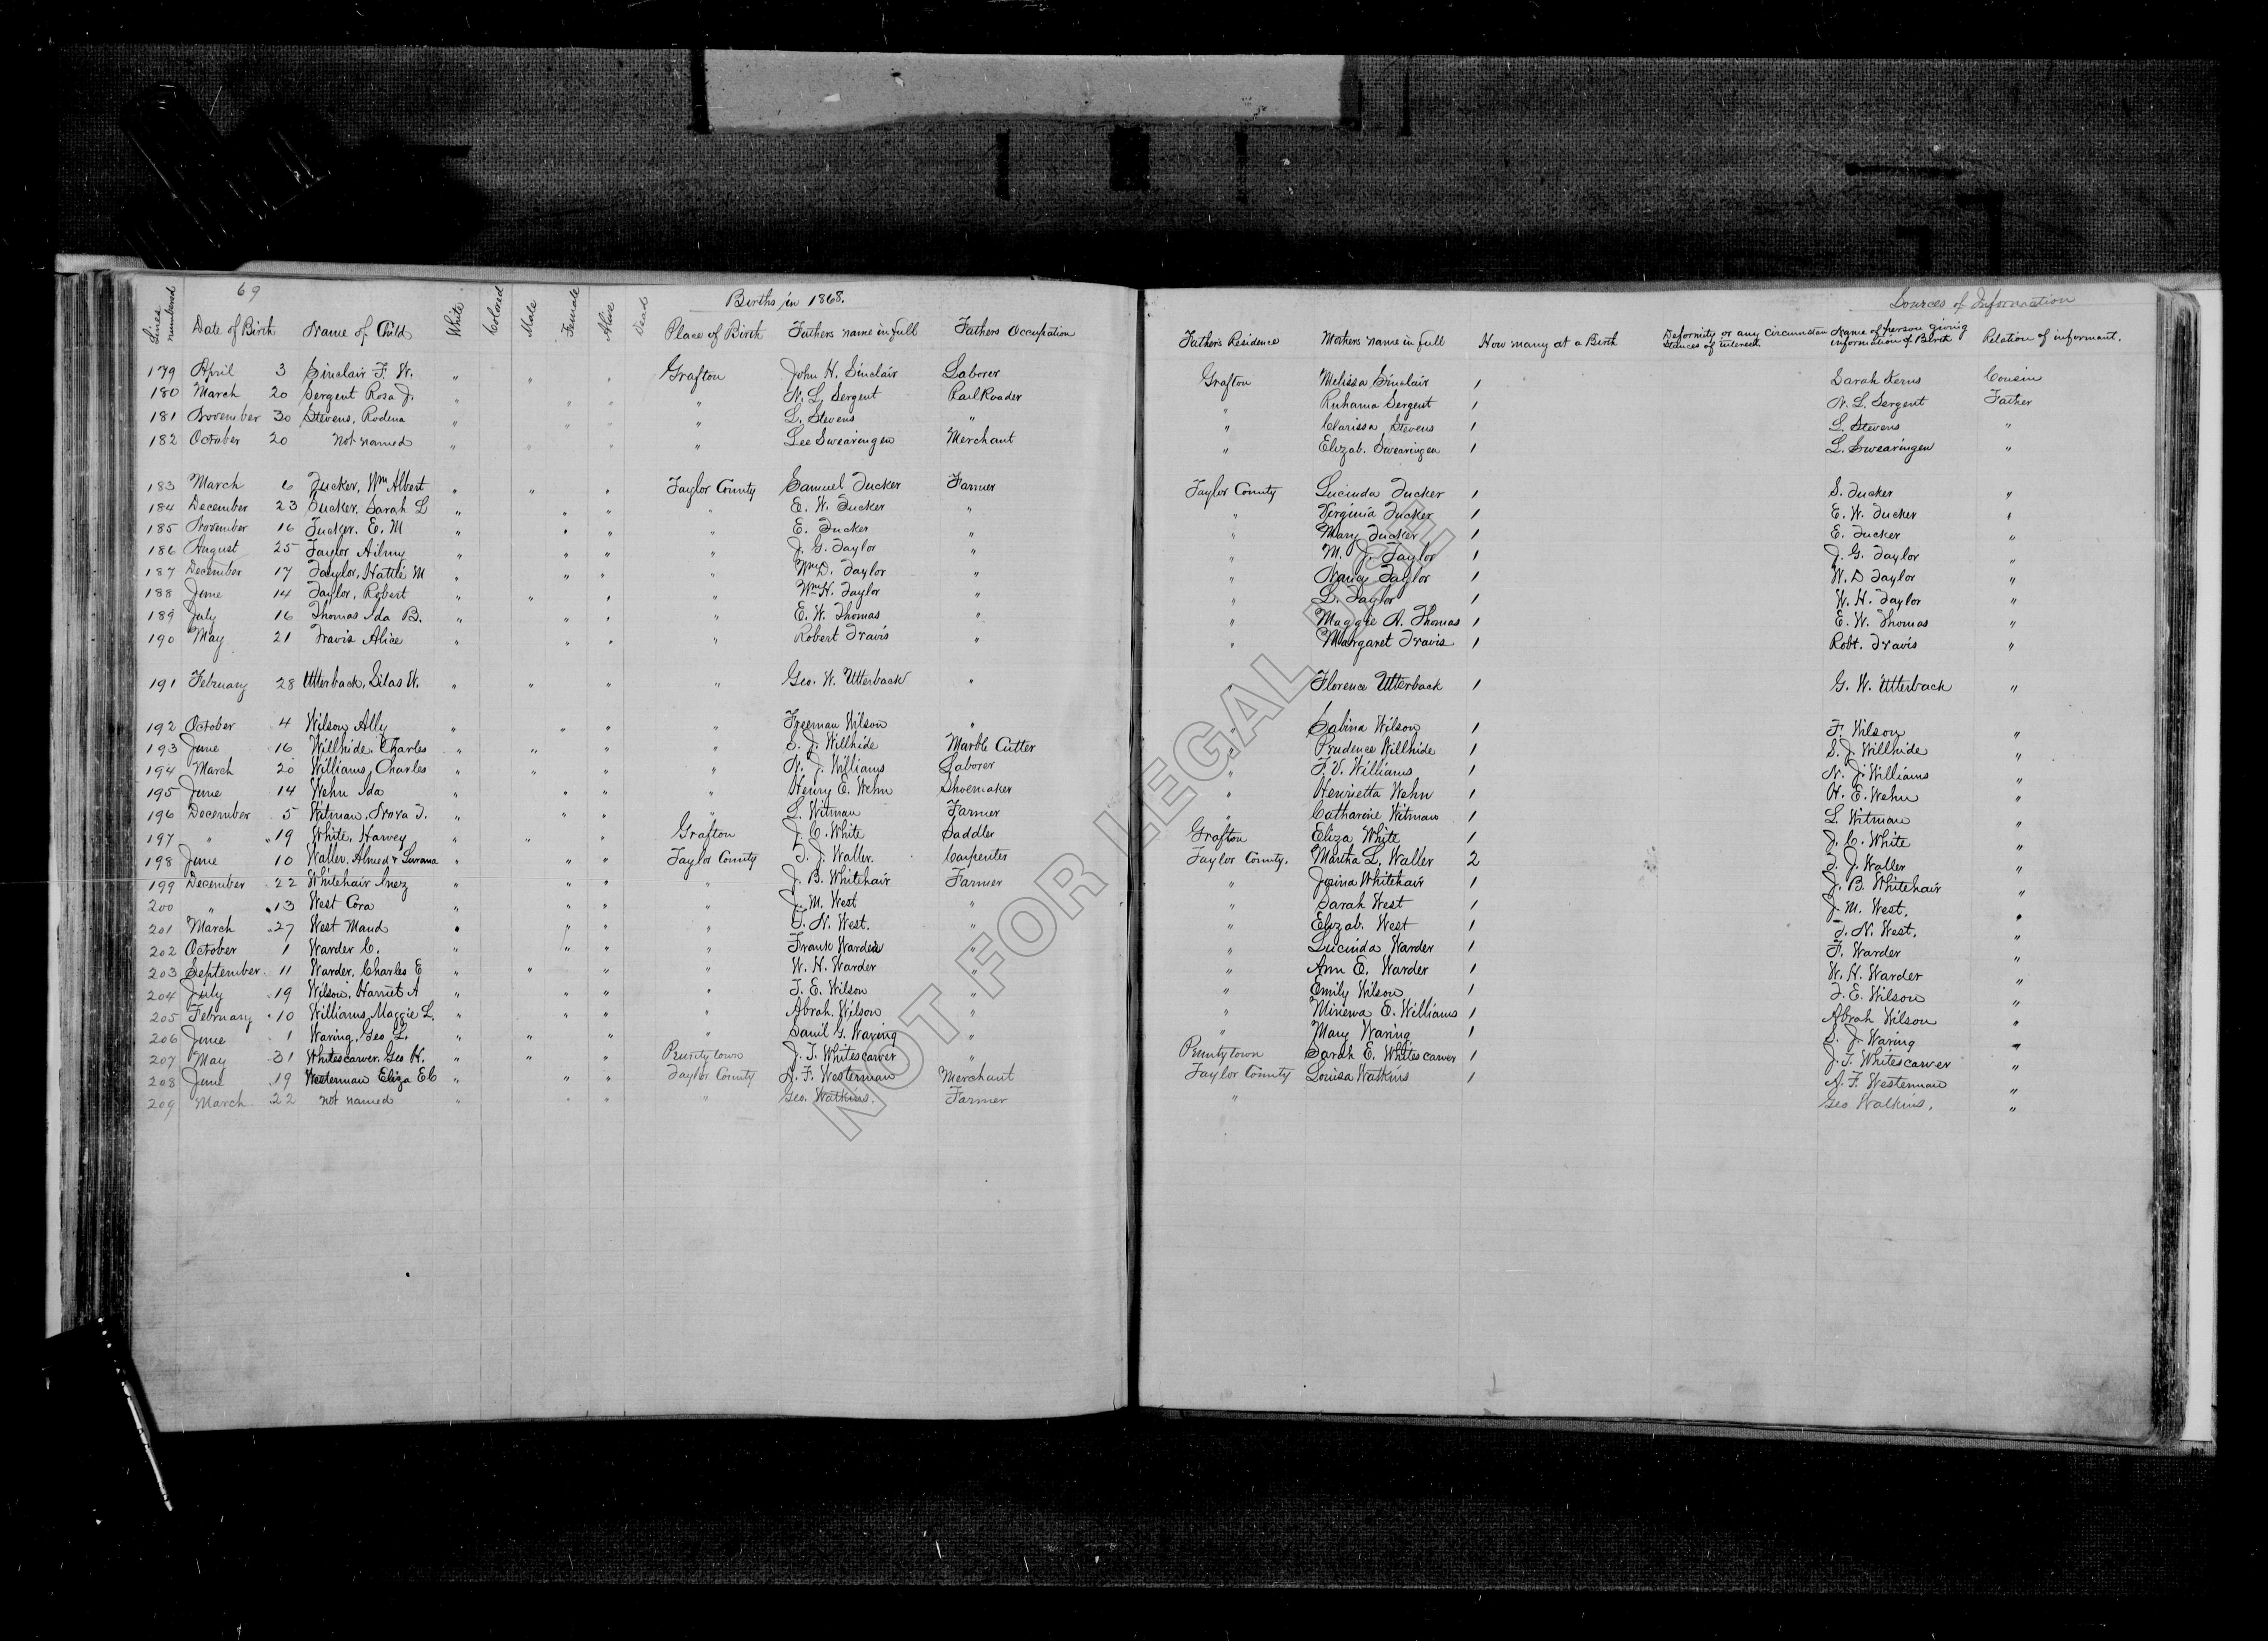 69
Births in 1868.
Sources of Information
Lines numbered Date of Birth Name of Child White Colored Male Female Alive Dead Place of Birth Fathers name in full Fathers Occupation Father's Residence Mothers name in full How many at a Birth Deformity or any Circumstances of interest. Name of person giving information of Birth Relation of informant.
179 April 3 Sinclair F. W. " " " Grafton John H. Sinclair Laborer Grafton Melissa Sinclair 1 Sarah Kerns Cousin
180 March 20 Sergent Rosa J. " " " " N. L. Sergent Rail Roader " Ruhama Sergent 1 N. L. Sergent Father
181 November 30 Stevens, Rodena " " " " L. Stevens " " Clarissa Stevens 1 L. Stevens "
182 October 20 not named " " " " Lee Swearingen Merchant " Elizab. Swearingen 1 L. Swearingen "
183 March 6 Tucker, Wm Albert " " " Taylor County Samuel Tucker Farmer Taylor County Lucinda Tucker 1 S. Tucker "
184 December 23 Tucker, Sarah L " " " " E. W. Tucker " " Virginia Tucker 1 E. W. Tucker "
185 November 16 Tucker. E. M " " " " E. Tucker " " Mary Tucker 1 E. Tucker "
186 August 25 Taylor " " " " J. G. Taylor " " M. J. Taylor 1 J. G. Taylor "
187 December 17 Taylor, Hattie M " " " " Wm D. Taylor " " Nancy Taylor 1 W. D Taylor "
188 June 14 Taylor, Robert " " " " Wm H. Taylor " " L. Taylor 1 W. H. Taylor "
189 July 16 Thomas Ida B. " " " " E. W. Thomas " " Maggie A. Thomas 1 E. W. Thomas "
190 May 21 Travis Alice " " " " Robert Travis " " Margaret Travis 1 Robt. Travis "
191 February 28 Utterback, Silas W. " " " " Geo. W. Utterback " " Florence Utterback 1 G. W. Utterback "
192 October 4 Wilson Ally " " " " Freeman Wilson " " Sabina Wilson 1 F. Wilson "
193 June 16 Willhide. Charles " " " " S. J. Willhide Marble Cutter " Prudence Willhide 1 S. J. Willhide "
194 March 20 Williams, Charles " " " " N. J. Williams Laborer " F. V. Williams 1 N. J. Williams "
195 June 14 Wehn Ida " " " " Henry E. Wehn Shoemaker " Henrietta Wehn 1 H. E. Wehn "
196 December 5 Witman, Nora T. " " " " L. Witman Farmer " Catharine Witman 1 L. Witman "
197 " 19 White, Harvey " " " Grafton J. C. White Saddler Grafton Eliza White 1 J. C. White "
198 June 10 Waller. & " " " Taylor County T. J. Waller. Carpenter Taylor County. Martha L. Waller 2 T. J. Waller "
199 December 22 Whitehair Inez " " " " J. B. Whitehair Farmer " Whitehair 1 J. B. Whitehair "
200 " 13 West Cora " " " " J. M. West " " Sarah West 1 J. M. West. "
201 March 27 West Maud " " " " T. N. West. " " Elizab. West 1 T. N. West. "
202 October 1 Warder C. " " " " Frank Warder " " Lucinda Warder 1 F. Warder "
203 September 11 Warder, Charles E " " " " W. H. Warder " " Ann E. Warder 1 W. H. Warder "
204 July 19 Wilson, Harriet A " " " " T. E. Wilson " " Emily Wilson 1 T. E. Wilson "
205 February 10 Williams Maggie L. " " " " Abrah. Wilson " " Minerva E. Williams 1 Abrah Wilson "
206 June 1 Waring, Geo L. " " " " Danil G. Waring " " Mary Waring 1 S. J. Waring "
207 May 31 Whitescarver. Geo H. " " " Pruntytown J. T. Whitescarver " Pruntytown Sarah E. Whitescarver 1 J. T. Whitescarver "
208 June 19 Westerman Eliza " " " Taylor County A. F. Westerman Merchant Taylor County Louisa Watkins 1 A. F. Westerman "
209 March 22 not named " " " " Geo. Watkins. Farmer " Geo Watkins. "
NOT FOR LEGAL USE